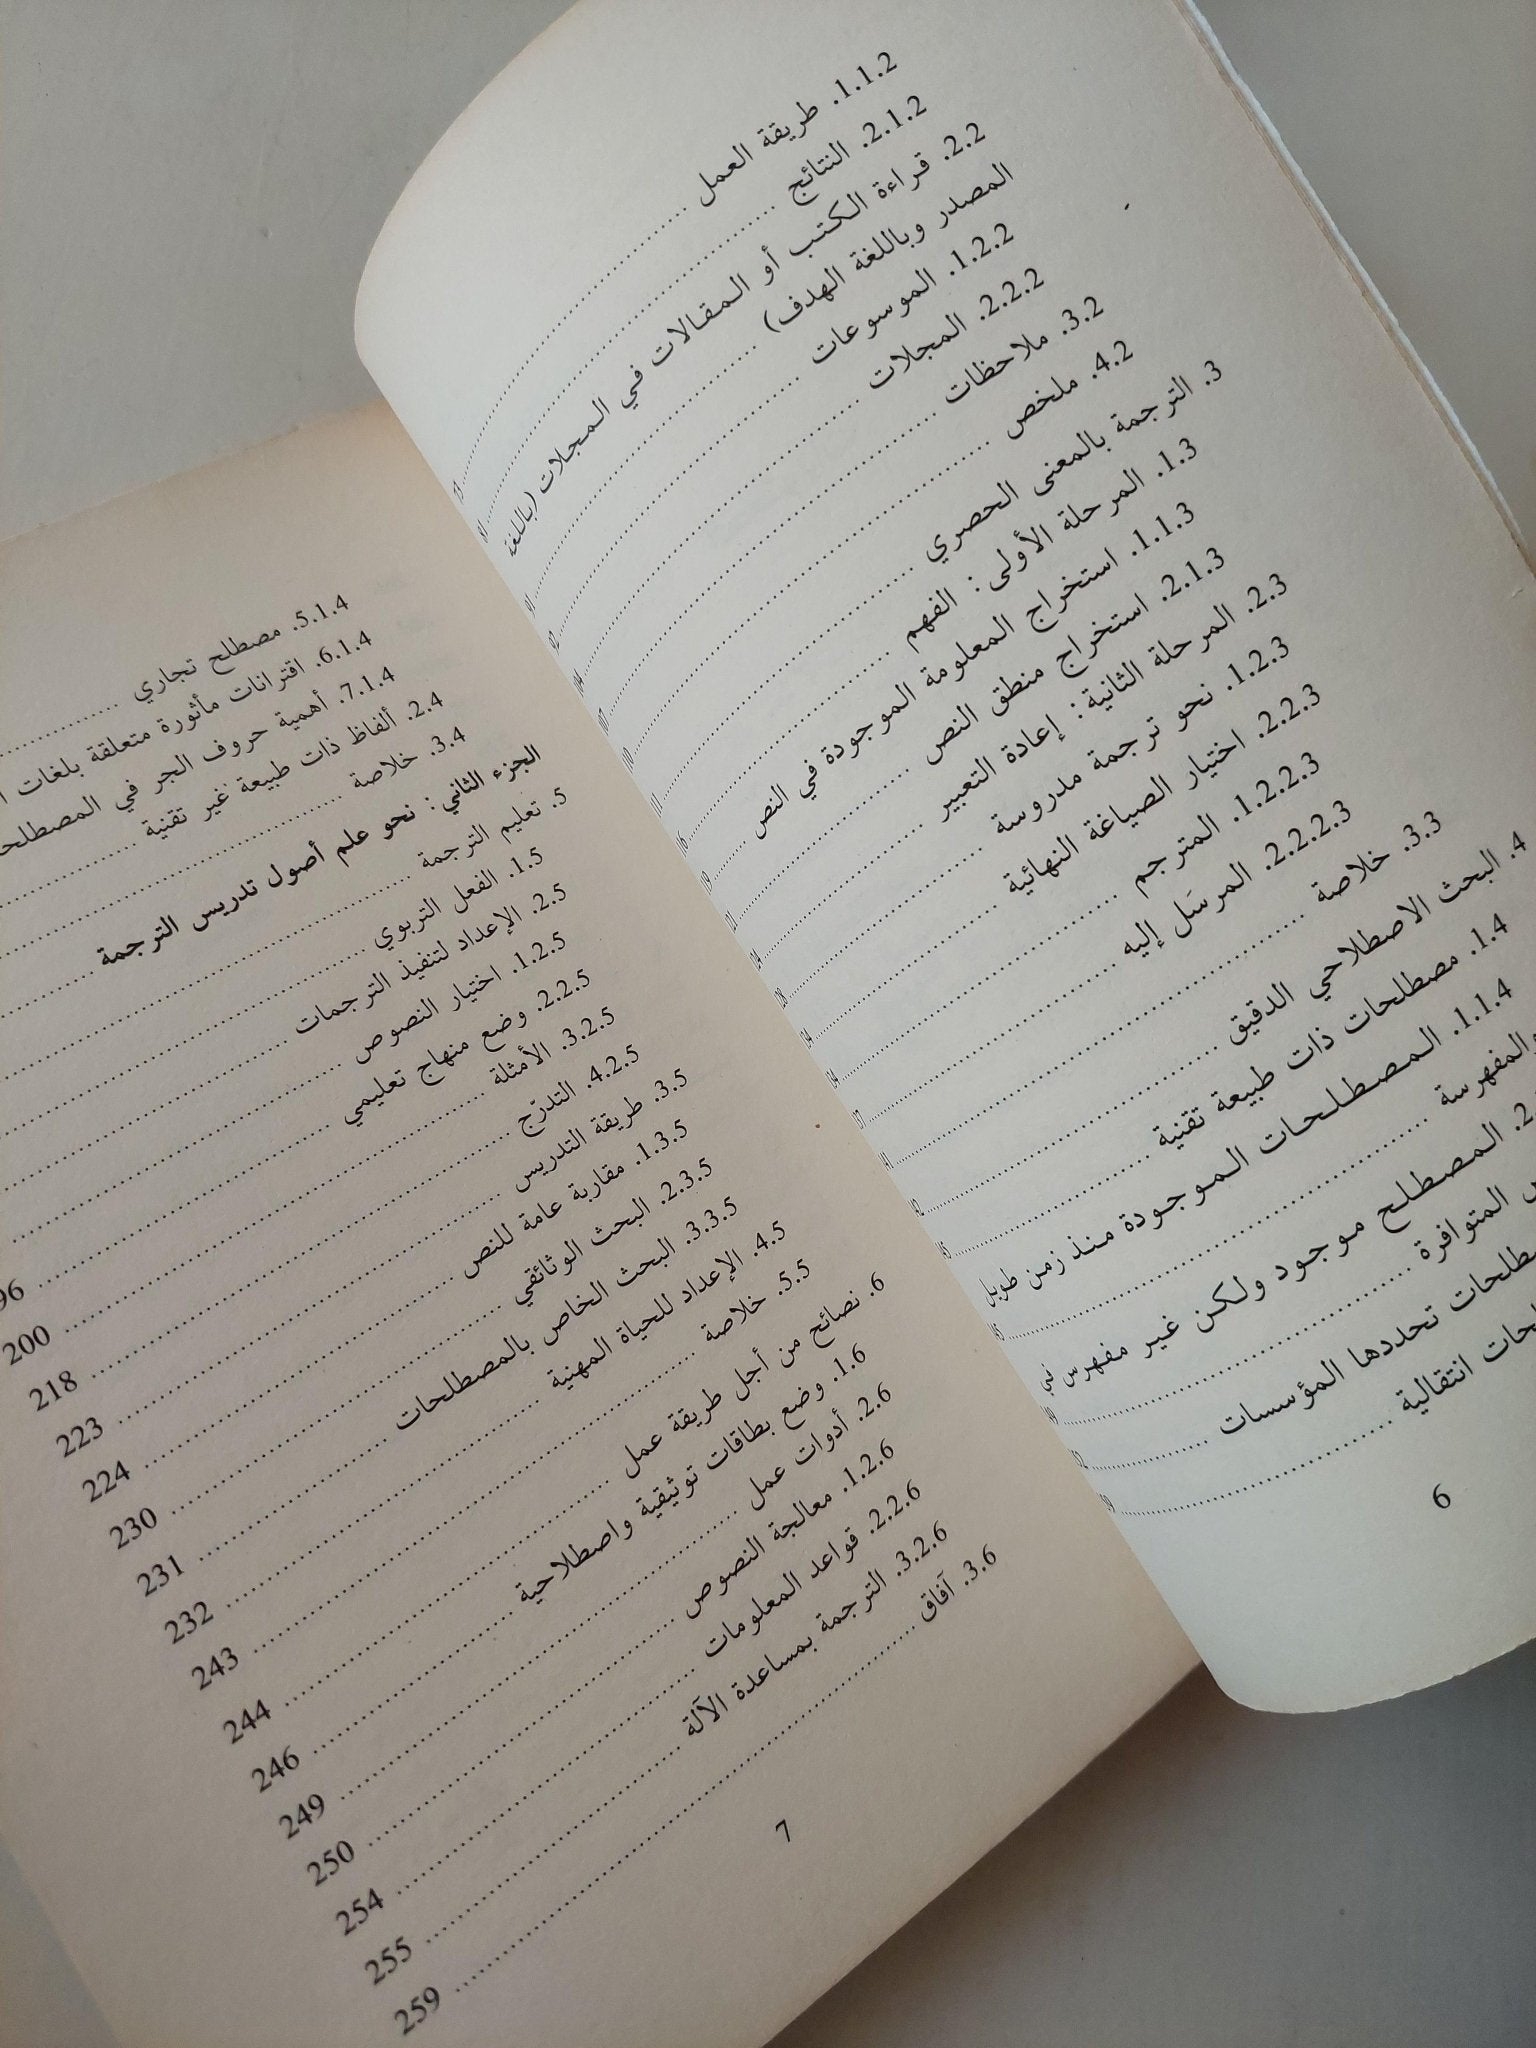 1.1.2. طريقة العمل
2.1.2. النتائج
2.2. قراءة الكتب أو المقالات في المجلات (باللغة
المصدر وباللغة الهدف)
1.2.2. الموسوعات
2.2.2. المجلات
3.2. ملاحظات
4.2. ملخص
3. الترجمة بالمعنى الحصري
1.3. المرحلة الأولى: الفهم
1.1.3. استخراج المعلومة الموجودة في النص
2.1.3. استخراج منطق النص
2.3. المرحلة الثانية: إعادة التعبير
1.2.3. نحو ترجمة مدروسة
2.2.3. اختيار الصياغة النهائية
1.2.2.3. المترجم
2.2.2.3. المرسَل إليه
3.3. خلاصة
4. البحث الاصطلاحي الدقيق
1.4. مصطلحات ذات طبيعة تقنية
1.1.4. المصطلحات الموجودة منذ زمن طويل
والمفهرسة
المصطلح موجود ولكن غير مفهرس في
المتوافرة
تحددها المؤسسات
انتقالية
6
5.1.4. مصطلح تجاري
6.1.4. اقترانات مأثورة متعلقة بلغات
7.1.4. أهمية حروف الجر في
2.4. ألفاظ ذات طبيعة غير تقنية
3.4. خلاصة
الجزء الثاني: نحو علم أصول تدريس الترجمة
5. تعليم الترجمة
1.5. الفعل التربوي
2.5. الإعداد لتنفيذ الترجمات
1.2.5. اختيار النصوص
2.2.5. وضع منهاج تعليمي
3.2.5. الأمثلة ........ 200
4.2.5. التدرّج ........ 218
3.5. طريقة التدريس ........ 223
1.3.5. مقاربة عامة للنص ........ 224
2.3.5. البحث الوثائقي ........ 230
3.3.5. البحث الخاص بالمصطلحات ........ 231
4.5. الإعداد للحياة المهنية ........ 232
5.5. خلاصة ........ 243
6. نصائح من أجل طريقة عمل ........ 244
1.6. وضع بطاقات توثيقية واصطلاحية ........ 246
2.6. أدوات عمل ........ 249
1.2.6. معالجة النصوص ........ 250
2.2.6. قواعد المعلومات ........ 254
3.2.6. الترجمة بمساعدة الآلة ........ 255
3.6. آفاق ........ 259
7